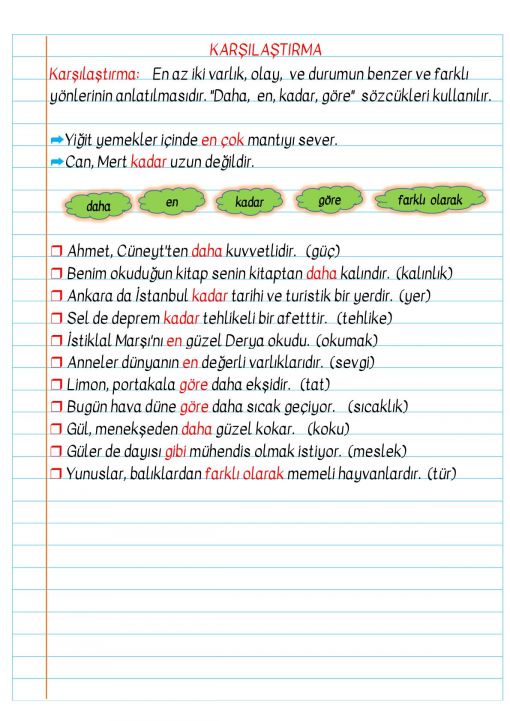 KARŞILAŞTIRMA
Karşılaştırma: En az iki varlık, olay, ve durumun benzer ve farklı
yönlerinin anlatılmasıdır. "Daha, en, kadar, göre" sözcükleri kullanılır.
Yiğit yemekler içinde en çok mantıyı sever.
Can, Mert kadar uzun değildir.
daha en kadar göre farklı olarak
Ahmet, Cüneyt'ten daha kuvvetlidir. (güç)
Benim okuduğun kitap senin kitaptan daha kalındır. (kalınlık)
Ankara da İstanbul kadar tarihi ve turistik bir yerdir. (yer)
Sel de deprem kadar tehlikeli bir afetttir. (tehlike)
İstiklal Marşı'nı en güzel Derya okudu. (okumak)
Anneler dünyanın en değerli varlıklarıdır. (sevgi)
Limon, portakala göre daha ekşidir. (tat)
Bugün hava düne göre daha sıcak geçiyor. (sıcaklık)
Gül, menekşeden daha güzel kokar. (koku)
Güler de dayısı gibi mühendis olmak istiyor. (meslek)
Yunuslar, balıklardan farklı olarak memeli hayvanlardır. (tür)